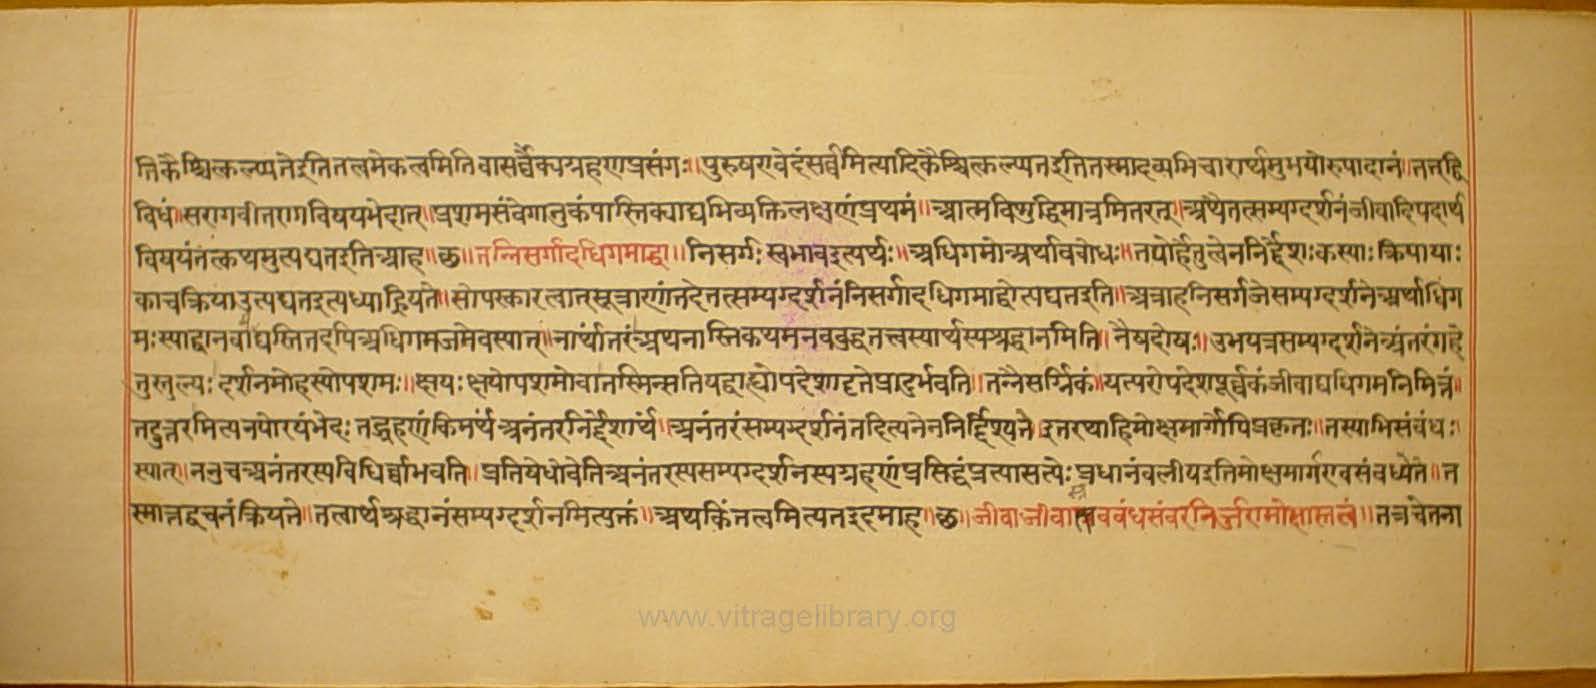 तिकैश्चित्कल्प्यतेइतितत्वमेकत्वमितिवासर्व्वैक्यग्रहणप्रसंगः॥पुरुषएवेदंसर्व्वमित्यादिकैश्चित्कल्प्यतइतितस्मादव्यभिचारार्थमुभयोरुपादानं॥तत्द्वि
विधं॥सरागवीतरागविषयभेदात्॥प्रशमसंवेगानुकंपास्तिक्याद्यभिव्यक्तिलक्षणंप्रथमं॥आत्मविशुद्धिमात्रमितरत्॥अथैतत्सम्यग्दर्शनंजीवादिपदार्थ
विषयंतत्कथमुत्पद्यतइतिआह॥छ॥तन्निसर्गादधिगमाद्वा॥निसर्गः स्वभावइत्यर्थः॥अधिगमोअर्थावबोधः॥तयोर्हेतुत्वेननिर्द्देशःकस्याः क्रियायाः
काचक्रियाउत्पद्यतइत्यध्याह्रियते॥सोपस्कारत्वात्सूत्राणांतदेतत्सम्यग्दर्शनंनिसर्गादधिगमाद्वोत्पद्यतइति॥अत्राहनिसर्गजेसम्यग्दर्शनेअर्थाधिग
मःस्याद्वानवाद्यस्तितदपिअधिगमजमेवस्यात्॥नार्थांतरंअथनास्तिकथमनवबुद्धतत्त्वस्यार्थस्यश्रद्धानमिति॥नैषदोषः॥उभयत्रसम्यग्दर्शनेअंतरंगहे
तुस्तुल्यः दर्शनमोहस्योपशमः॥क्षयः क्षयोपशमोवातस्मिन्सतियद्वाह्योपदेशादृतेप्रादुर्भवति॥तन्नैसर्ग्गिकं॥यत्परोपदेशपूर्व्वकंजीवाद्यधिगमनिमित्तं॥
तदुत्तरमित्यनयोरयंभेदः तद्ग्रहणंकिमर्थंअनंतरनिर्द्देशार्थं॥अनंतरंसम्यग्दर्शनंतदित्यनेननिर्द्दिश्यते॥इतरथाहिमोक्षमार्गोपिप्रकृतः॥तस्याभिसंबंधः
स्यात्॥ननुचअनंतरस्यविधिर्व्वाभवति॥प्रतिषेधोवेतिअनंतरस्यसम्यग्दर्शनस्यग्रहणंप्रसिद्धंप्रत्यासत्येः प्रधानंबलीयइतिमोक्षमार्गएवसंबध्येते॥त
स्मात्तद्वचनंक्रियते॥तत्वार्थश्रद्धानंसम्यग्दर्शनमित्युक्तं॥अथकिंतत्वमित्यतइदमाह॥छ॥जीवाजीवास्रवबंधसंवरनिर्ज्जरामोक्षास्तत्वं॥तत्रचेतना
www.vitragelibrary.org